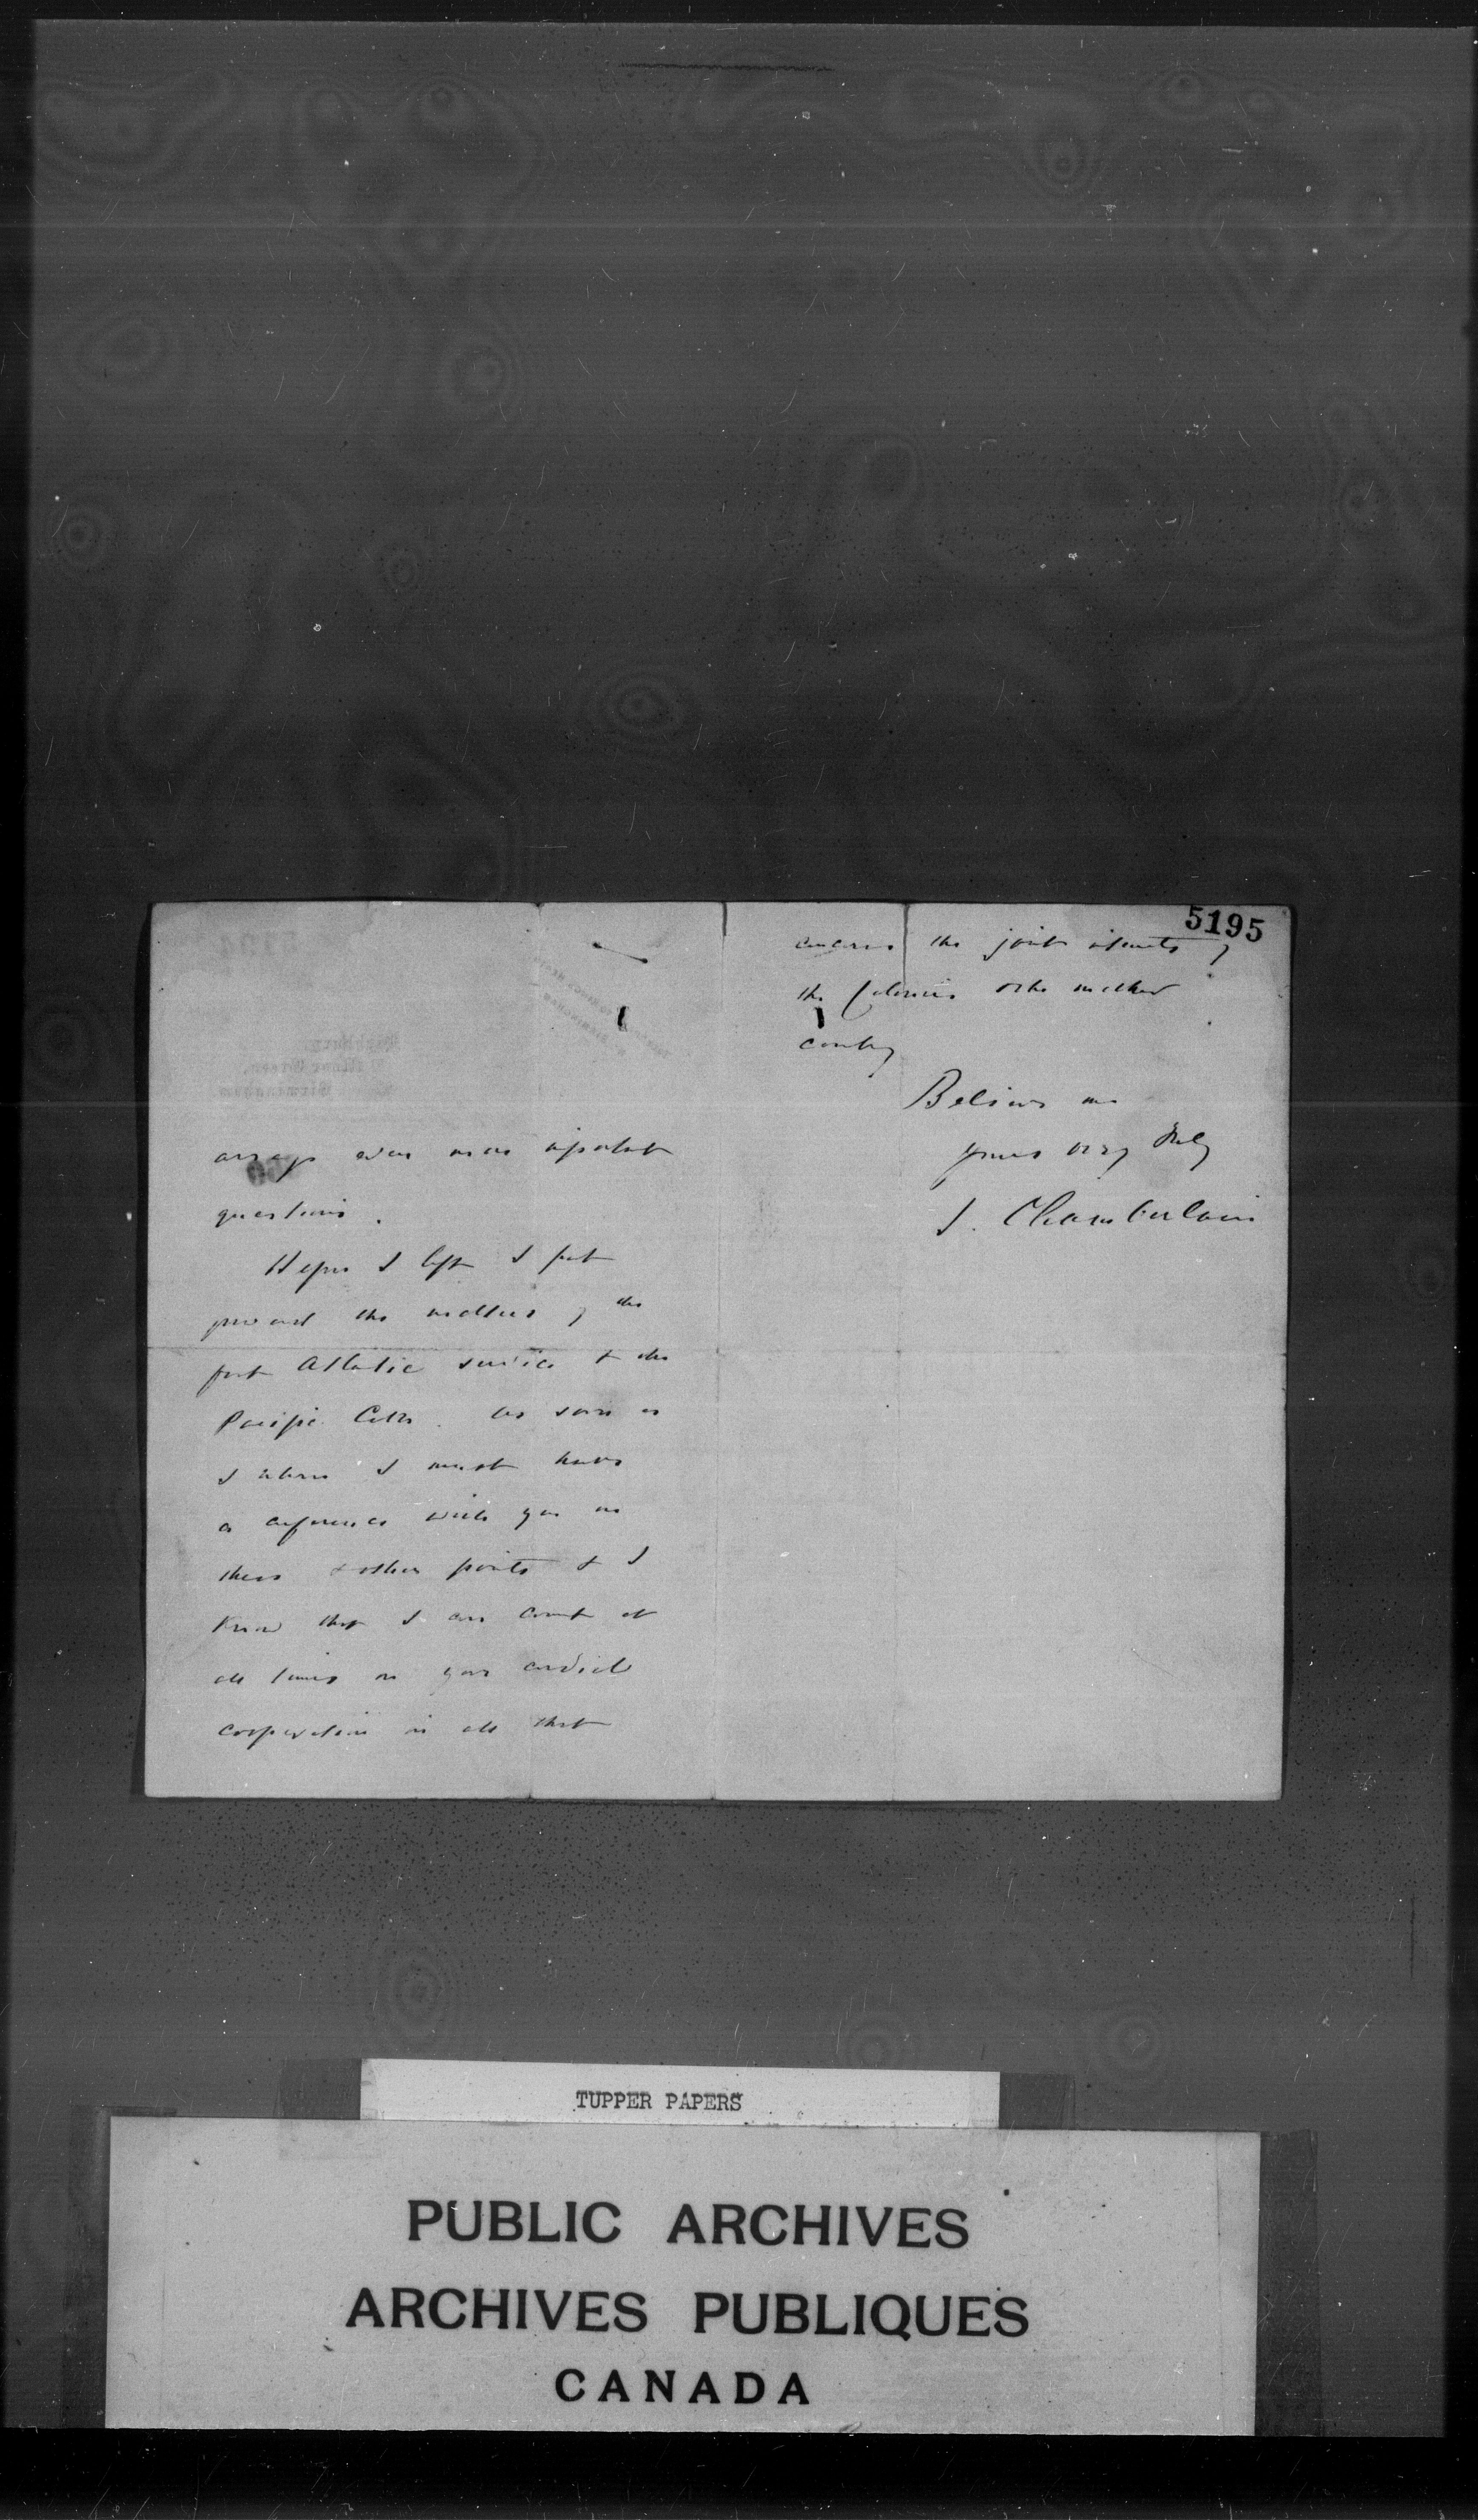 5195
arrange even more important
questions.
Before I left I put
forward the matters of the
fast Atlantic service & the
Pacific Cable. As soon as
I return I must have
a conference with you on
these & other points & I
know that I can count at
all times on your cordial
cooperation in all that
concerns the joint interests of
the Colonies & the mother
country
Believe me
yours very truly
J. Chamberlain
TUPPER PAPERS
PUBLIC ARCHIVES
ARCHIVES PUBLIQUES
CANADA